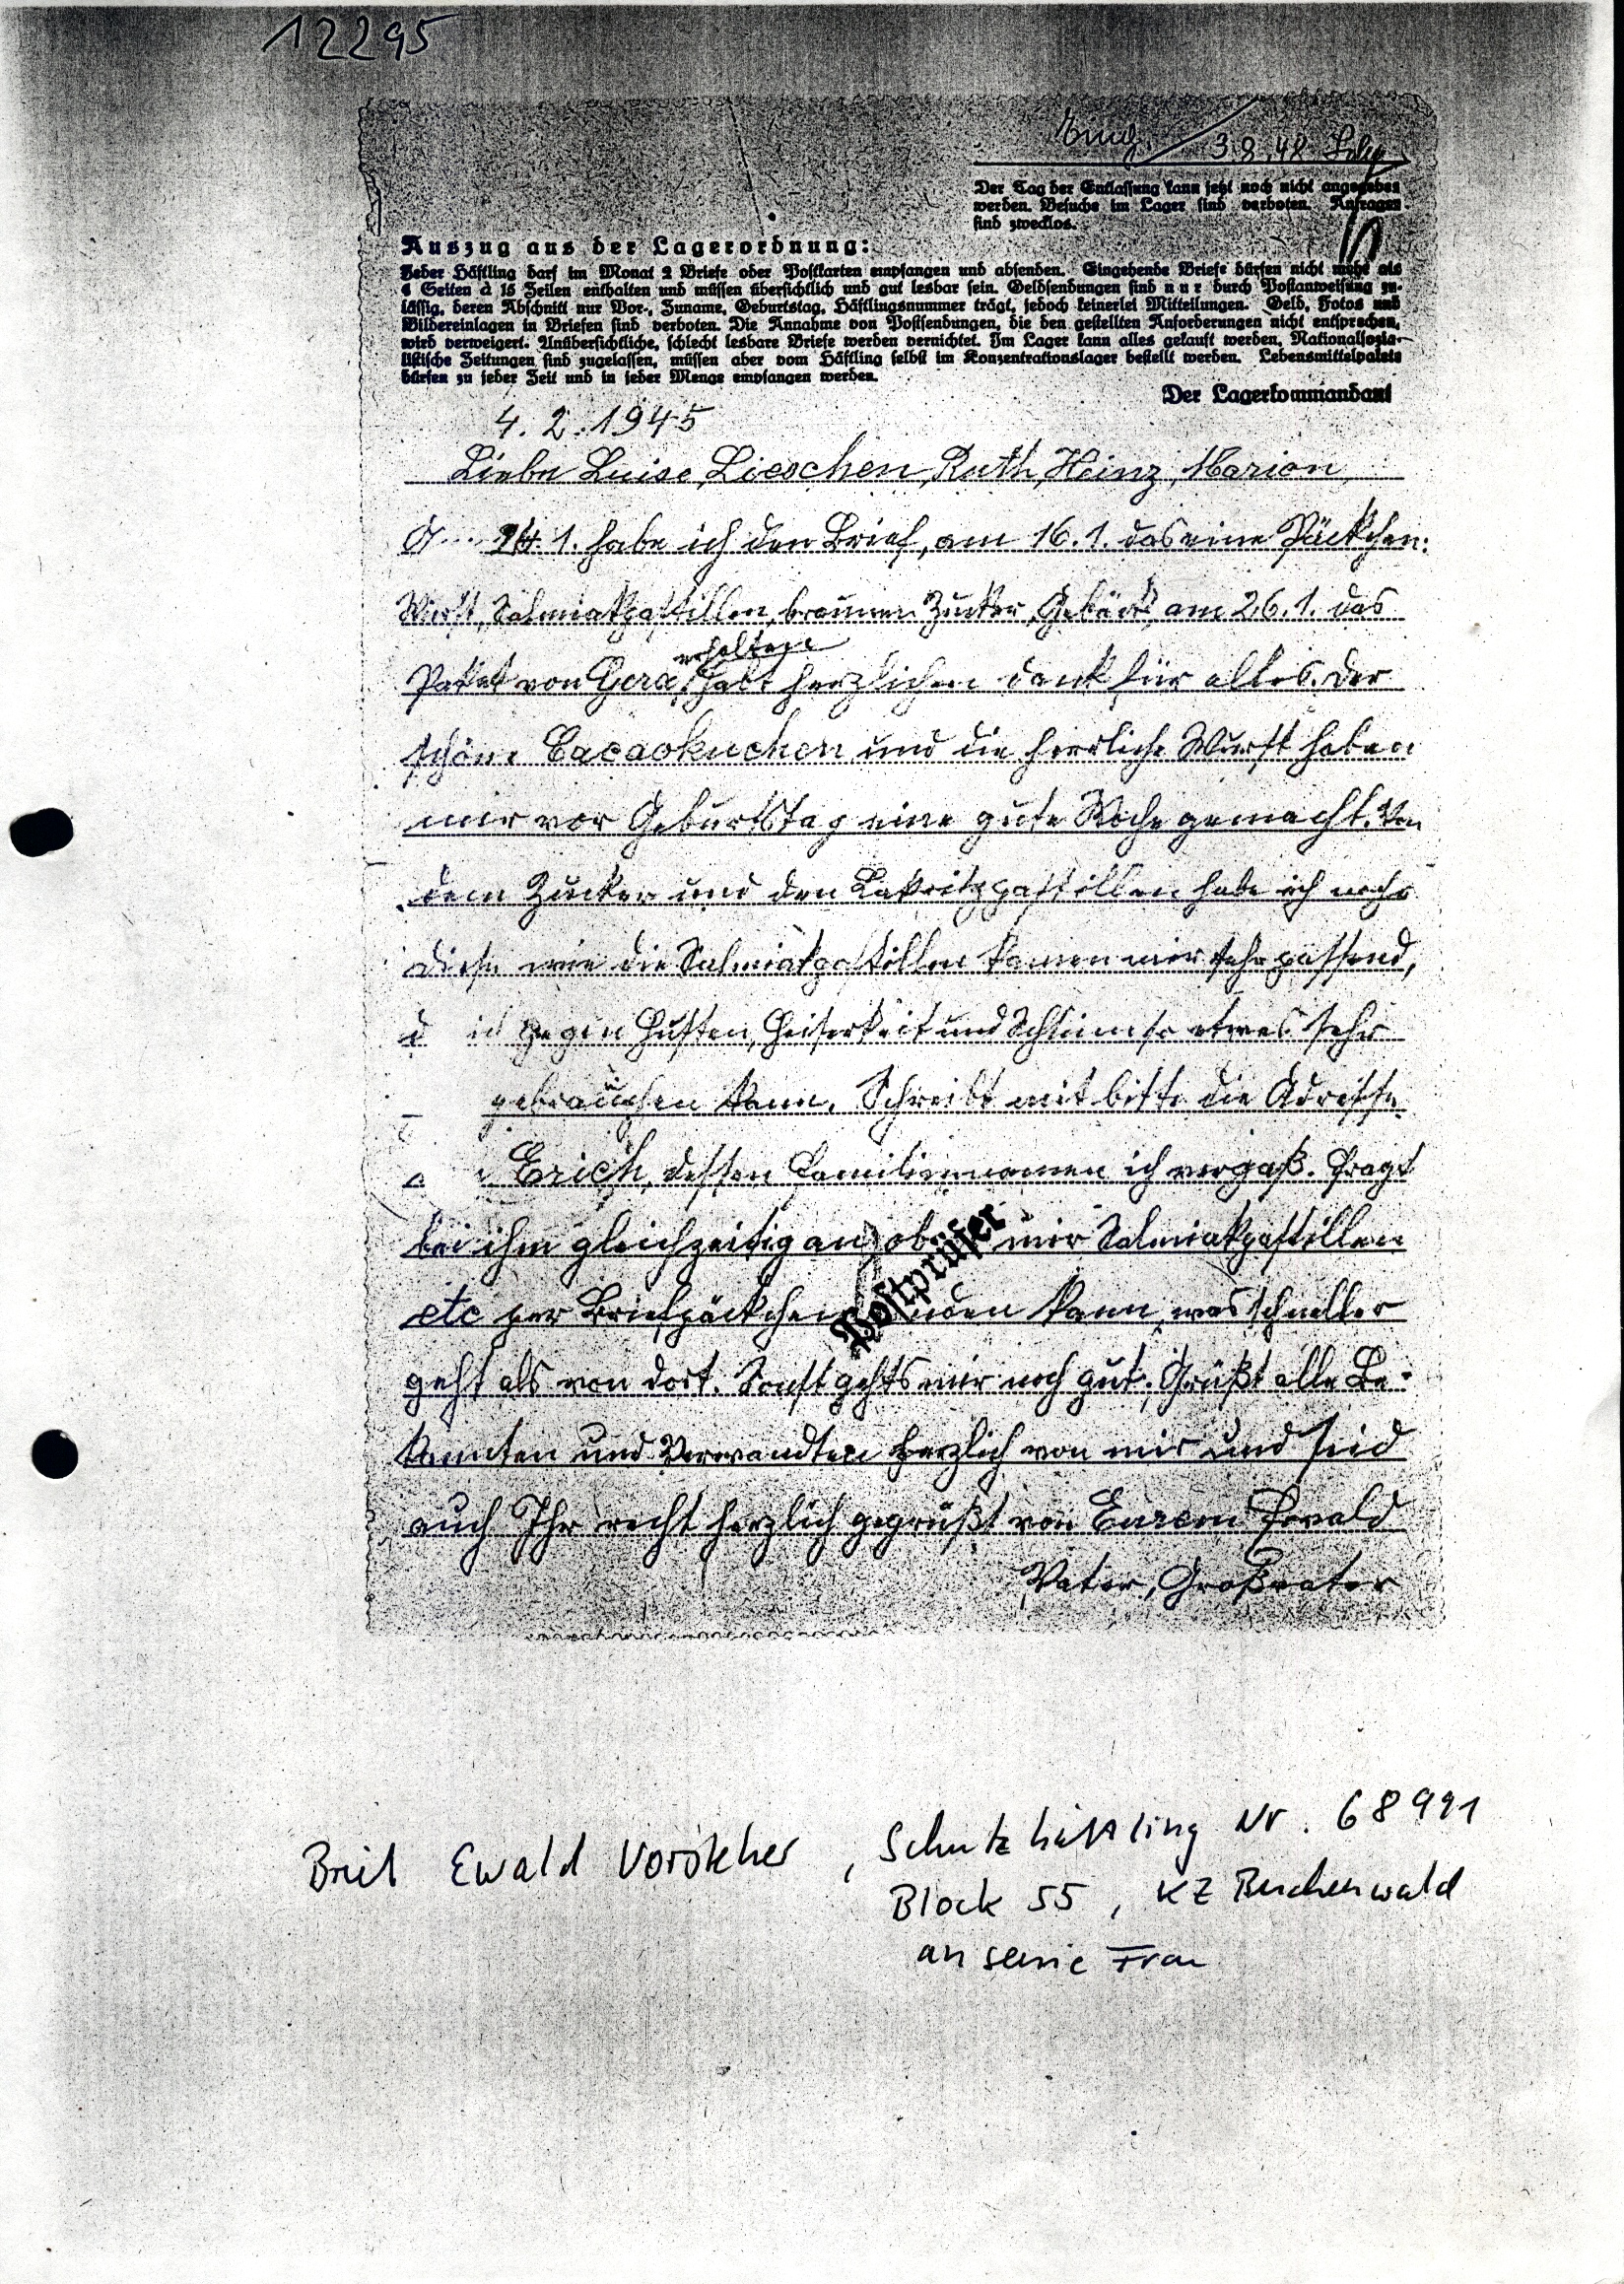 12295
3.8.48
Der Tag der Entlassung kann jetzt noch nicht angegeben
werden. Besuche im Lager sind verboten. Anfragen
sind zwecklos.
Auszug aus der Lagerordnung:
Jeder Häftling darf im Monat 2 Briefe oder Postkarten empfangen und absenden. Eingehende Briefe dürfen nicht mehr als
4 Seiten à 15 Zeilen enthalten und müssen übersichtlich und gut lesbar sein. Geldsendungen sind nur durch Postanweisung zu-
lässig, deren Abschnitt nur Vor-, Zuname, Geburtstag, Häftlingsnummer trägt, jedoch keinerlei Mitteilungen. Geld, Fotos und
Bildereinlagen in Briefen sind verboten. Die Annahme von Postsendungen, die den gestellten Anforderungen nicht entsprechen,
wird verweigert. Unübersichtliche, schlecht lesbare Briefe werden vernichtet. Im Lager kann alles gekauft werden. Nationalsozia-
listische Zeitungen sind zugelassen, müssen aber vom Häftling selbst im Konzentrationslager bestellt werden. Lebensmittelpakete
dürfen zu jeder Zeit und in jeder Menge empfangen werden.
Der Lagerkommandant
4.2.1945
Liebe Luise, Lieschen, Ruth, Heinz, Marion
1. habe ich den Brief, am 16.1. das eine Päckchen:
Wurst, Salmiakpastillen, braunen Zucker, Gebäck, am 26.1. das
erhalten
Paket von Gera. Habt herzlichen Dank für alles. Der
schöne Cacaokuchen und die herrliche Wurst haben
mir vor Geburtstag eine gute Woche gemacht. Von
dem Zucker und den Lakritzpastillen habe ich noch
diese wie die Salmiakpastillen kamen mir sehr passend,
gegen Husten, Heiserkeit und Schleim so etwas sehr
gebrauchen kann. Schreibt mit bitte die Adresse
Erich, dessen Familiennamen ich vergaß. Fragt
bei ihm gleichzeitig an, ob mir Salmiakpastillen
etc per Briefpäckchen kann, was schneller
Postprüfer
geht als von dort. Sonst gehts mir noch gut. Grüßt alle Be-
kannten und Verwandten herzlich von mir und seid
auch Ihr recht herzlich gegrüßt von Eurem Ewald
Vater, Großvater
Brief Ewald Vorsteher, Schutzhäftling Nr. 68991
Block 55, KZ Buchenwald
an seine Frau